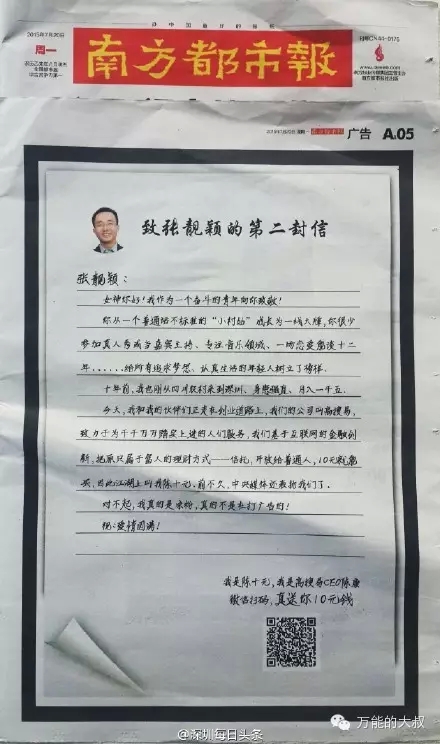 办中国最好的报纸
2015年7月20日
周一
南方都市報
刊号CN 44-0175
广告 A05
致张靓颖的第二封信
张靓颖:
女神你好!我作为一个奋斗的青年向你致敬!
你从一个普通话不标准的“小村姑”成长为一线大牌,你很少
参加真人秀或当嘉宾主持、专注音乐领域、一场恋爱爱谈十二
年,......给所有追求梦想、认真生活的年轻人树立了榜样。
十年前,我也刚从四川农村来到深圳、身无分文、月入一千五。
今天,我和我的伙伴们正走在创业道路上,我们的公司叫高搜易,
致力于为千千万万踏实上进的人们服务,我们基于互联网的金融创
新,把原只属于富人的理财方式——信托,开放给普通人,10元就能
买,因此江湖上叫我陈十元,前不久,中央媒体还表扬我们了。
对不起,我真的是来粉,真的不是来打广告的!
祝:爱情圆满!
我是陈十元,我是高搜易CEO陈康
微信扫码,真送你10元钱
@深圳每日头条
万能的大叔